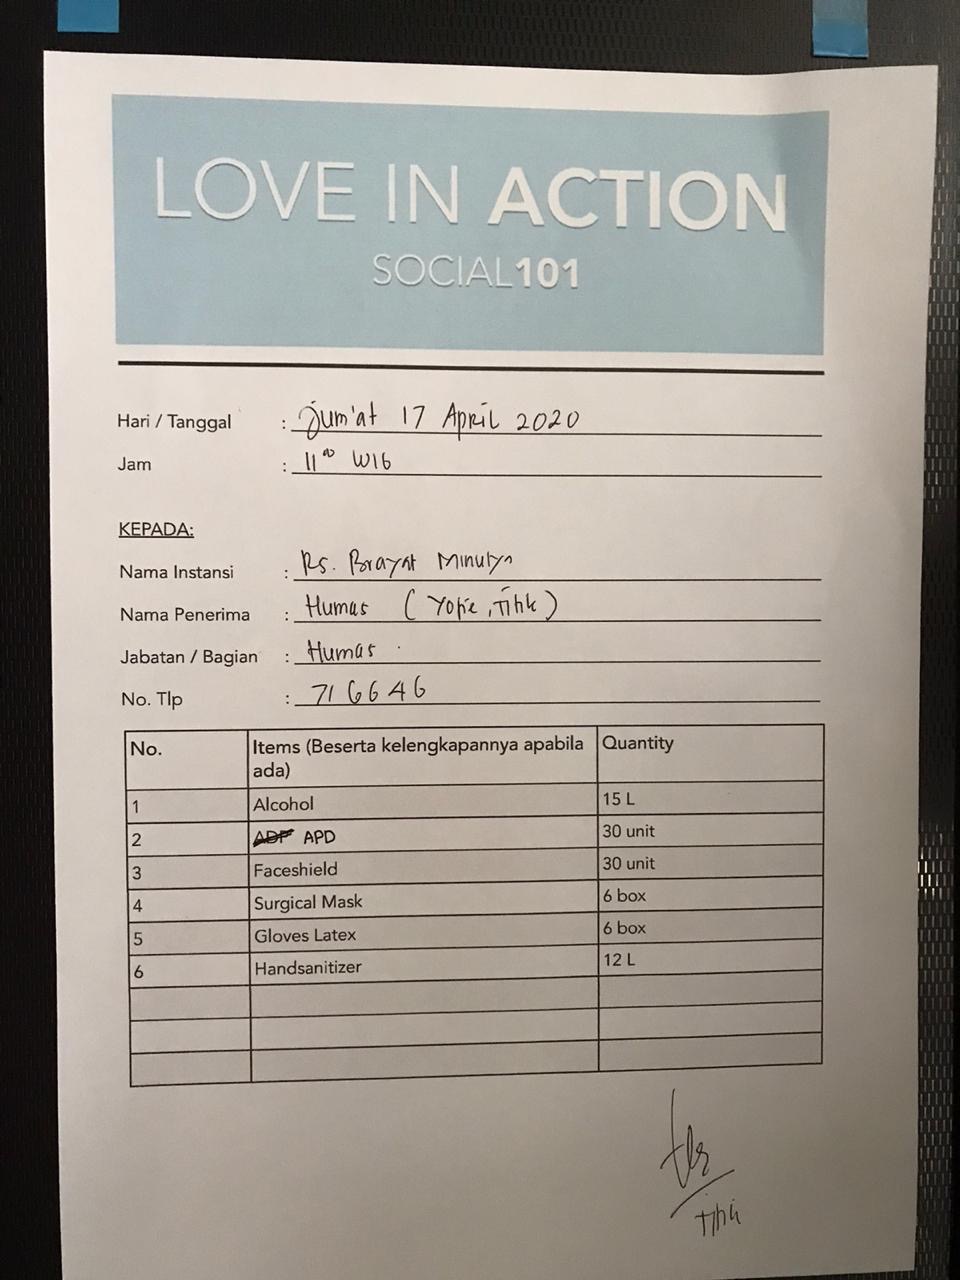 LOVE IN ACTION
SOCIAL101
Hari / Tanggal : Jum'at 17 April 2020
Jam : 11⁰⁰ WIB
KEPADA:
Nama Instansi : Rs. Brayat Minulya
Nama Penerima : Humas (Yopie, Titik)
Jabatan / Bagian : Humas
No. Tlp : 716646
No. Items (Beserta kelengkapannya apabila ada) Quantity
1 Alcohol 15 L
2 ADP APD 30 unit
3 Faceshield 30 unit
4 Surgical Mask 6 box
5 Gloves Latex 6 box
6 Handsanitizer 12 L
Titik